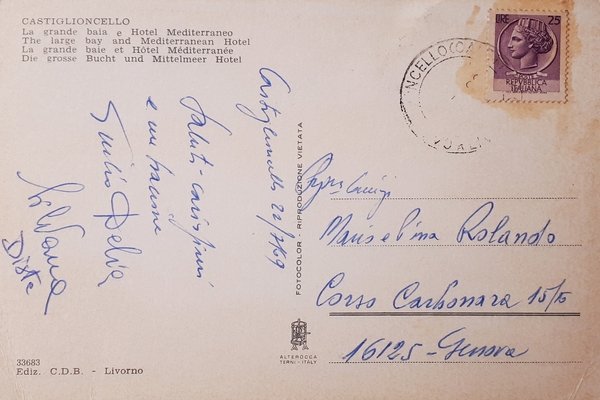 CASTIGLIONCELLO
La grande baia e Hotel Mediterraneo
The large bay and Mediterranean Hotel
La grande baie et Hôtel Méditerranée
Die grosse Bucht und Mittelmeer Hotel
Castiglioncello 22/7/69
Saluti carissimi
e un bacione
Giulio Delia
Silvana
33683
Ediz. C.D.B. - Livorno
FOTOCOLOR - RIPRODUZIONE VIETATA
ALTEROCCA
TERNI - ITALY
LIRE 25
POSTE
REPUBBLICA
ITALIANA
NCELLO (
Rolando
Corso Carbonara 15/5
16125 - Genova